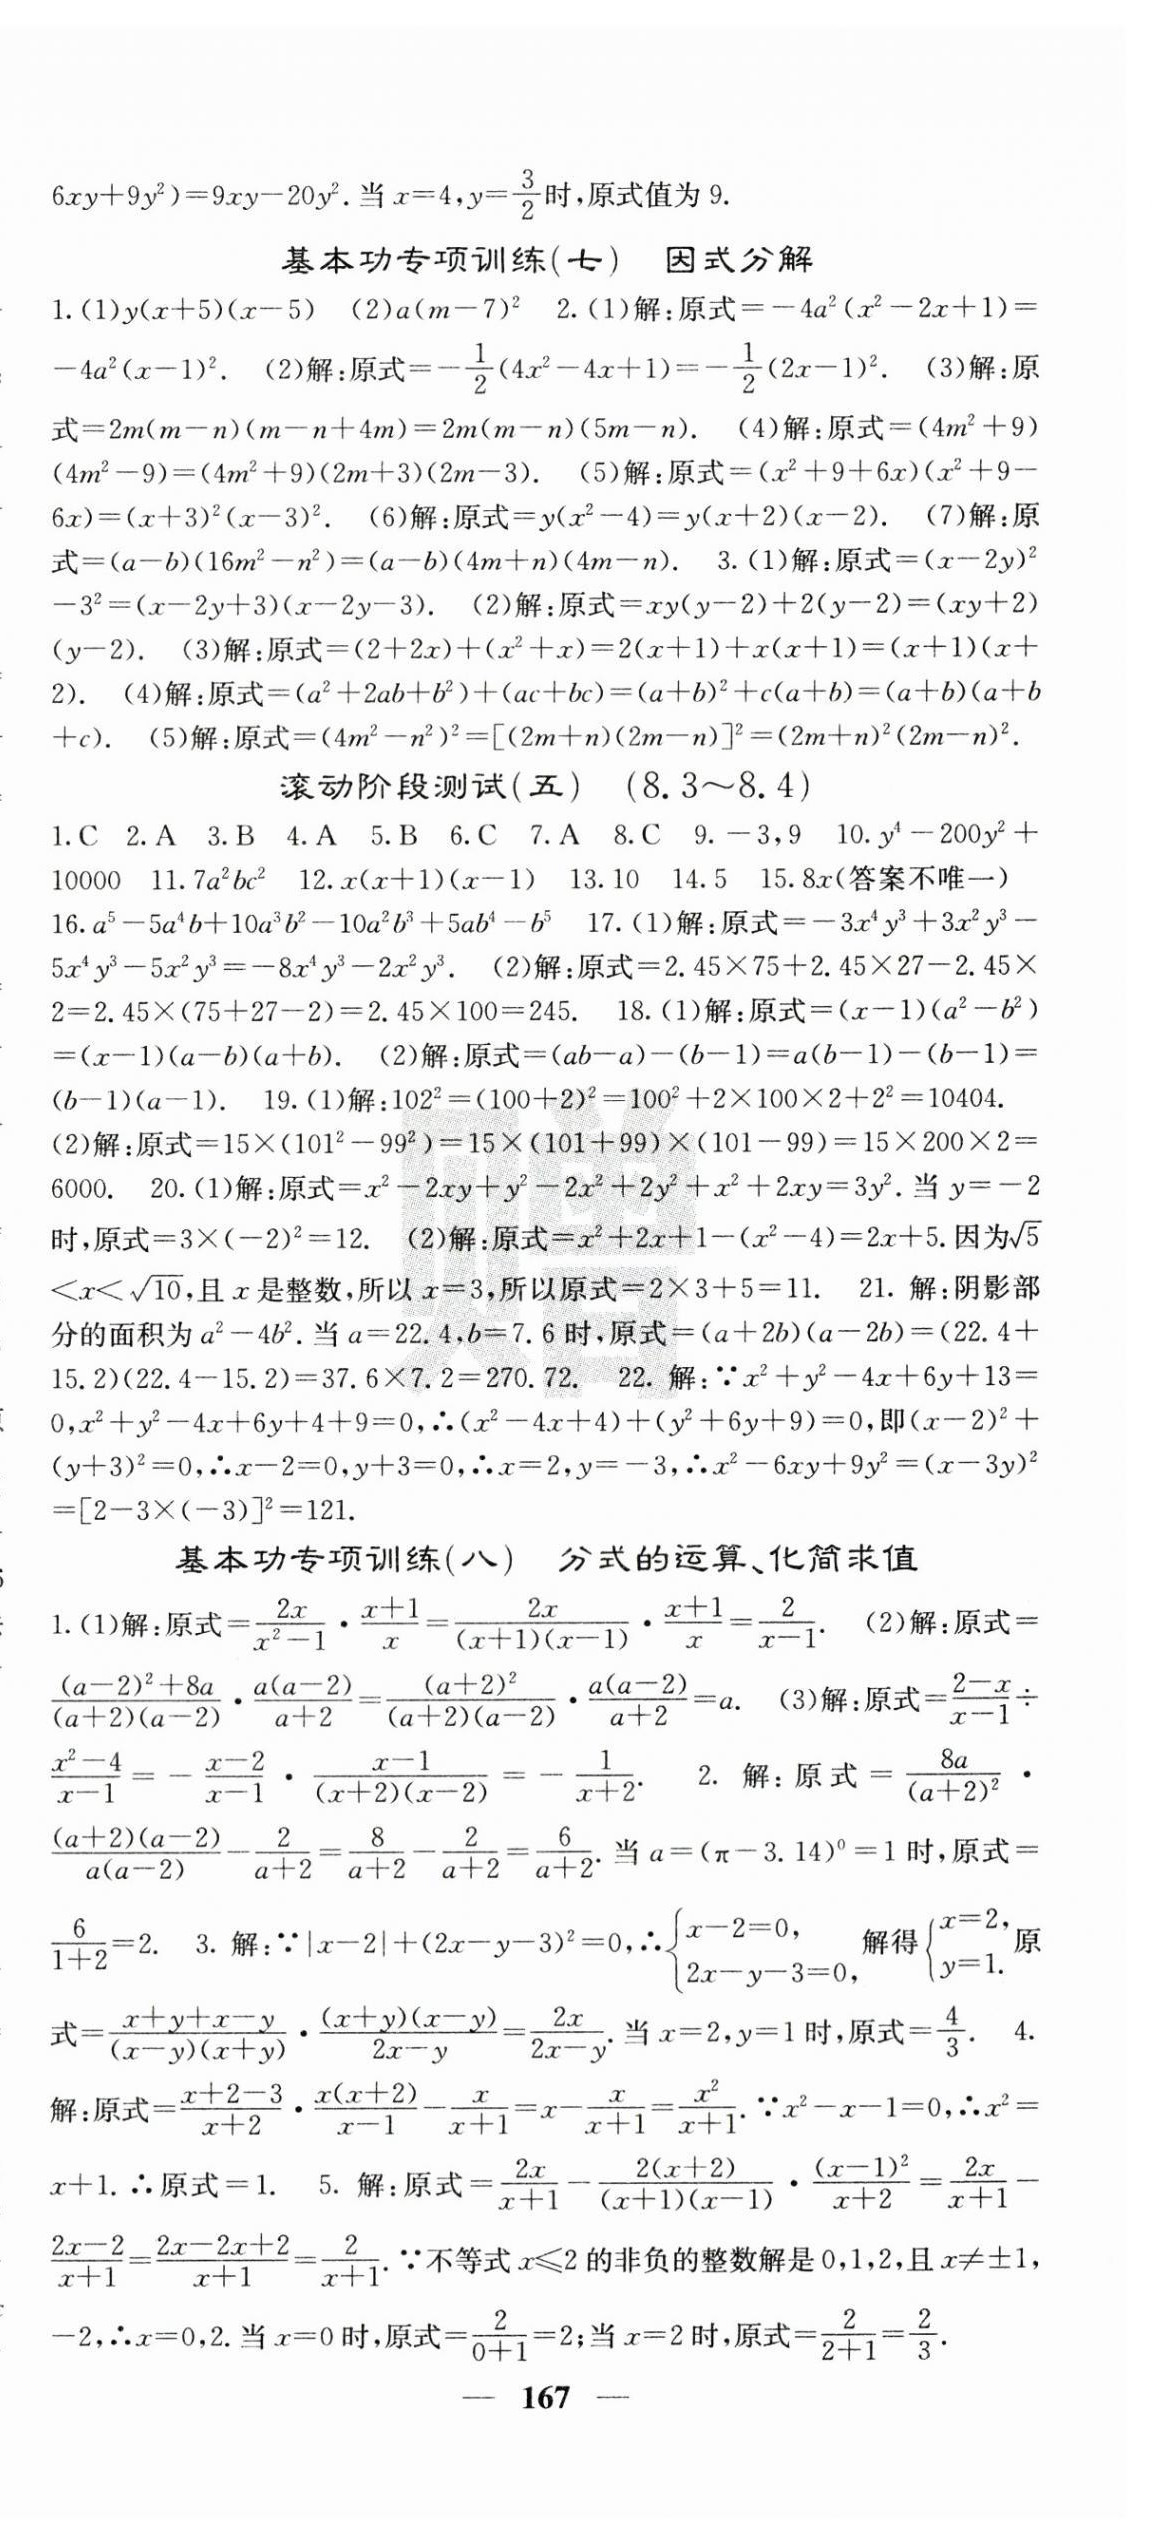 6xy+9y²)=9xy-20y².当 x=4,y=3/2时,原式值为 9.
基本功专项训练(七) 因式分解
1.(1)y(x+5)(x-5) (2)a(m-7)² 2.(1)解:原式=-4a²(x²-2x+1)=
-4a²(x-1)². (2)解:原式=-1/2(4x²-4x+1)=-1/2(2x-1)². (3)解:原
式=2m(m-n)(m-n+4m)=2m(m-n)(5m-n). (4)解:原式=(4m²+9)
(4m²-9)=(4m²+9)(2m+3)(2m-3). (5)解:原式=(x²+9+6x)(x²+9-
6x)=(x+3)²(x-3)². (6)解:原式=y(x²-4)=y(x+2)(x-2). (7)解:原
式=(a-b)(16m²-n²)=(a-b)(4m+n)(4m-n). 3.(1)解:原式=(x-2y)²
-3²=(x-2y+3)(x-2y-3). (2)解:原式=xy(y-2)+2(y-2)=(xy+2)
(y-2). (3)解:原式=(2+2x)+(x²+x)=2(x+1)+x(x+1)=(x+1)(x+
2). (4)解:原式=(a²+2ab+b²)+(ac+bc)=(a+b)²+c(a+b)=(a+b)(a+b
+c). (5)解:原式=(4m²-n²)²=[(2m+n)(2m-n)]²=(2m+n)²(2m-n)².
滚动阶段测试(五) (8.3～8.4)
1.C 2.A 3.B 4.A 5.B 6.C 7.A 8.C 9.-3,9 10.y⁴-200y²+
10000 11.7a²bc² 12.x(x+1)(x-1) 13.10 14.5 15.8x(答案不唯一)
16.a⁵-5a⁴b+10a³b²-10a²b³+5ab⁴-b⁵ 17.(1)解:原式=-3x⁴y³+3x²y³-
5x⁴y³-5x²y³=-8x⁴y³-2x²y³. (2)解:原式=2.45×75+2.45×27-2.45×
2=2.45×(75+27-2)=2.45×100=245. 18.(1)解:原式=(x-1)(a²-b²)
=(x-1)(a-b)(a+b). (2)解:原式=(ab-a)-(b-1)=a(b-1)-(b-1)=
(b-1)(a-1). 19.(1)解:102²=(100+2)²=100²+2×100×2+2²=10404.
(2)解:原式=15×(101²-99²)=15×(101+99)×(101-99)=15×200×2=
6000. 20.(1)解:原式=x²-2xy+y²-2x²+2y²+x²+2xy=3y².当 y=-2
时,原式=3×(-2)²=12. (2)解:原式=x²+2x+1-(x²-4)=2x+5.因为√5
<x<√10,且 x 是整数,所以 x=3,所以原式=2×3+5=11. 21. 解:阴影部
分的面积为 a²-4b².当 a=22.4,b=7.6 时,原式=(a+2b)(a-2b)=(22.4+
15.2)(22.4-15.2)=37.6×7.2=270.72. 22. 解:∵x²+y²-4x+6y+13=
0,x²+y²-4x+6y+4+9=0,∴(x²-4x+4)+(y²+6y+9)=0,即(x-2)²+
(y+3)²=0,∴x-2=0,y+3=0,∴x=2,y=-3,∴x²-6xy+9y²=(x-3y)²
=[2-3×(-3)]²=121.
基本功专项训练(八) 分式的运算、化简求值
1.(1)解:原式=2x/(x²-1)·(x+1)/x=2x/((x+1)(x-1))·(x+1)/x=2/(x-1). (2)解:原式=
((a-2)²+8a)/((a+2)(a-2))·a(a-2)/(a+2)=(a+2)²/((a+2)(a-2))·a(a-2)/(a+2)=a. (3)解:原式=(2-x)/(x-1)÷
(x²-4)/(x-1)=-(x-2)/(x-1)·(x-1)/((x+2)(x-2))=-1/(x+2). 2. 解:原式=8a/(a+2)²·
(a+2)(a-2)/(a(a-2))-2/(a+2)=8/(a+2)-2/(a+2)=6/(a+2).当 a=(π-3.14)⁰=1 时,原式=
6/(1+2)=2. 3. 解:∵|x-2|+(2x-y-3)²=0,∴{x-2=0, 2x-y-3=0, 解得{x=2, y=1. 原
式=(x+y+x-y)/((x-y)(x+y))·(x+y)(x-y)/(2x-y)=2x/(2x-y).当 x=2,y=1 时,原式=4/3. 4.
解:原式=(x+2-3)/(x+2)·x(x+2)/(x-1)-x/(x+1)=x-x/(x+1)=x²/(x+1).∵x²-x-1=0,∴x²=
x+1.∴原式=1. 5. 解:原式=2x/(x+1)-2(x+2)/((x+1)(x-1))·(x-1)²/(x+2)=2x/(x+1)-
(2x-2)/(x+1)=(2x-2x+2)/(x+1)=2/(x+1).∵不等式 x≤2 的非负的整数解是 0,1,2,且 x≠±1,
-2,∴x=0,2.当 x=0 时,原式=2/(0+1)=2;当 x=2 时,原式=2/(2+1)=2/3.
— 167 —